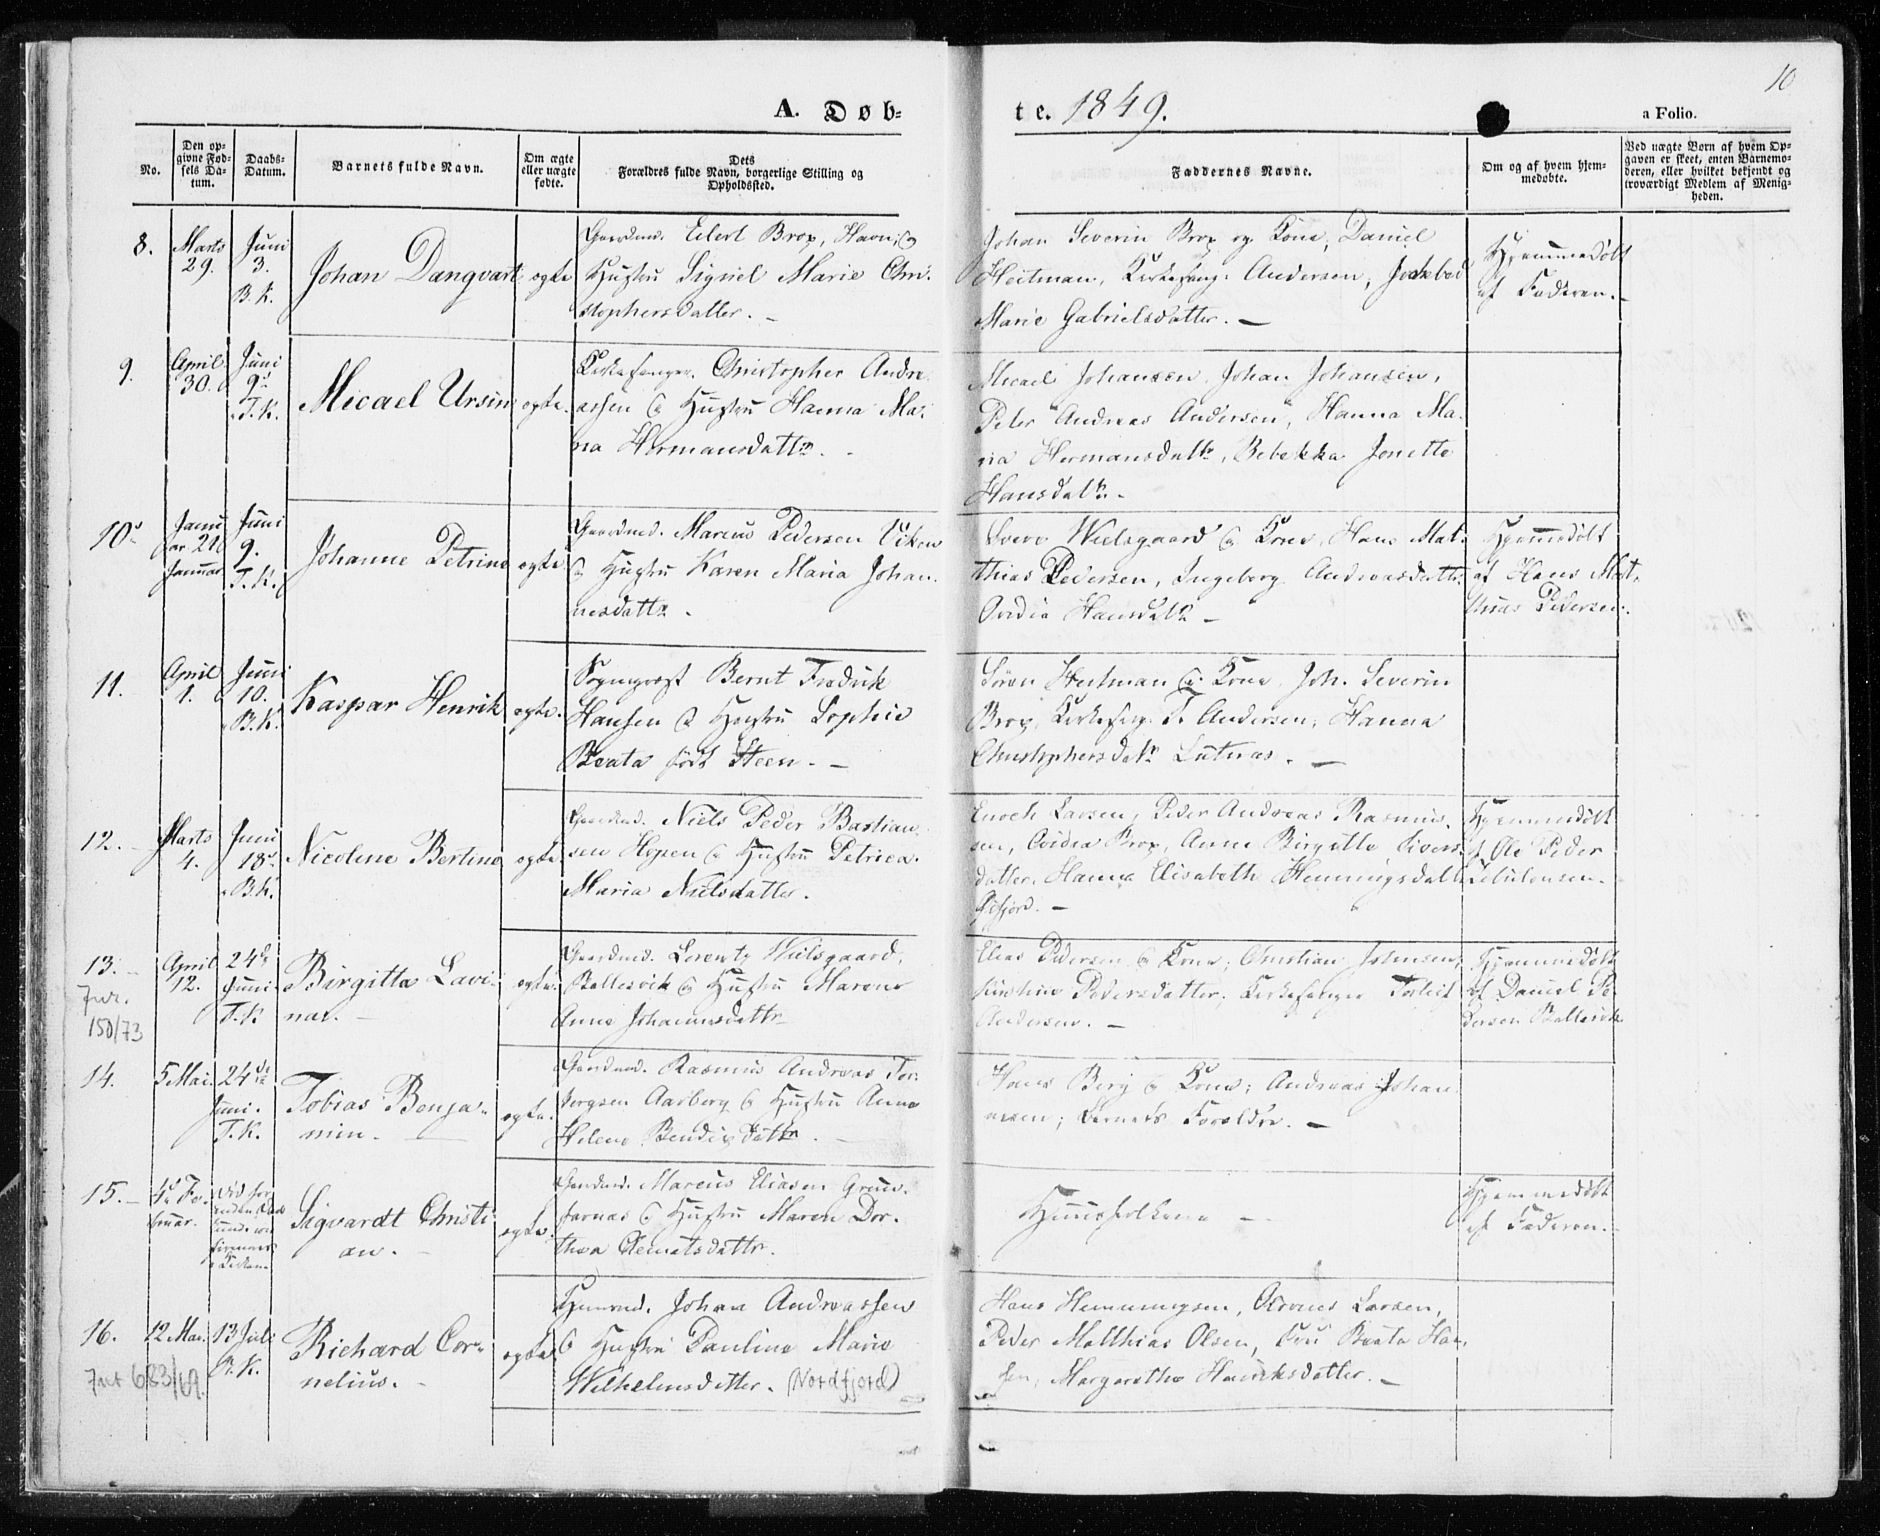 10
A. Døb-
te. 1849.
a Folio.
No.
Den op-
givne Fød-
sels Da-
tum.
Daabs-
Datum.
Barnets fulde Navn.
Om ægte
eller uægte
fødte.
Dets
Forældres fulde Navn, borgerlige Stilling og
Opholdssted.
Faddernes Navne.
Om og af hvem hjem-
medøbte.
Ved uægte Børn af hvem Op-
gaven er skeet, enten Barnemo-
deren, eller hvilket bekjendt og
troværdigt Medlem af Menig-
heden.
8.
Marts
29.
Juni
3.
B. K.
Johan Dangvart
ægte
Gaardmd. Eilert Brox, Havn, &
Hustru Signel Marie Chri-
stophersdatter. -
Johan Severin Brox og Kone, Daniel
Heitman, Kirkesang. Andersen,
Marie Gabrielsdatter. -
Hjemmedøbt
af Faderen. -
9.
April
30.
Juni
9de
T. K.
Micael Ursin
ægte.
Kirkesanger. Christopher Andre-
assen & Hustru Hanna Ma-
ria Hermansdattr.
Micael Johansen, Johan Johansen,
Peter Andreas Andersen, Hanna Ma-
ria Hermansdattr, Rebekka Jonette
Hansdattr. -
10.
Janu
ar 21
Januar
Juni
9.
T. K.
Johanne Petrine
ægte
Gaardmd. Marcus Pedersen Viken
& Hustru Karen Maria Johan-
nesdattr.
Wielsgaard & Kone, Hans Mat-
thias Pedersen, Ingeborg Andreasdattr.
Ovedia Hansdattr -
Hjemmedøbt
af Hans Mat-
thias Pedersen.
11.
April
1.
Juni
10.
B. K.
Kaspar Henrik
ægte.
Sogneprest Bernt Fredrik
Hansen & Hustru Sophie
Beata født Steen. -
Søren Heitman & Kone, Joh. Severin
Brox, Kirkesang. T. Andersen, Hanna
Christophersdatr Lutnæs. -
12.
Marts
4.
Juni
18.
B. K.
Nicoline Bertine
ægte.
Gaardmd. Niels Peder Bastian-
sen Hopen & Hustru Petrica
Maria Nielsdatter.
Enoch Larsen, Peder Andreas Rasmus-
sen, Ovidia Brox, Anne Birgitte Sivers-
datter, Hanna Elisabeth Henningsdattr
Hjemmedøbt
af Ole Peder
13.
Jvr.
150/73
April
12.
24de
Juni
T. K
Birgitta Lavi-
nae. -
ægte.
Gaardmd. Lorentz Wielsgaard,
Ballesvik & Hustru Marene
Anne Johannesdattr
Elias Pedersen & Kone, Christian Johnsen,
Kirstine Pedersdatter, Kirkesanger Torleif
Andersen. -
Hjemmedøbt
af Daniel Pe-
dersen Ballesvik
14.
5 Mai.
24de
Juni.
T. K.
Tobias Benja-
min. -
ægte.
Gaardmd. Rasmus Andreas Tor-
bergsen Aarberg & Hustru Anne
Helene Bendixdattr. -
Hans Berg & Kone; Andreas Johan-
nesen; Barnets Forældre. -
15. -
Fe-
bruar.
Sigvardt Christi-
an. -
ægte.
Gaardmd. Marcus Eliasen Grun-
farnæs & Hustru Maren Dor-
thea Clemetsdattr.
Huusfolkene -
Hjemmedøbt
af Faderen. -
16.
Jnt 683/69.
12 Mai.
13 Juli
B. K.
Richard Cor-
nelius. -
ægte
Huusmd. Johan Andreassen
& Hustru Pauline Marie
Wilhelmsdatter. (Nordfjord)
Hans Henningsen, Larsen,
Peder Matthias Olsen, Fru Beata Han-
sen, Margrethe Henriksdatter. -